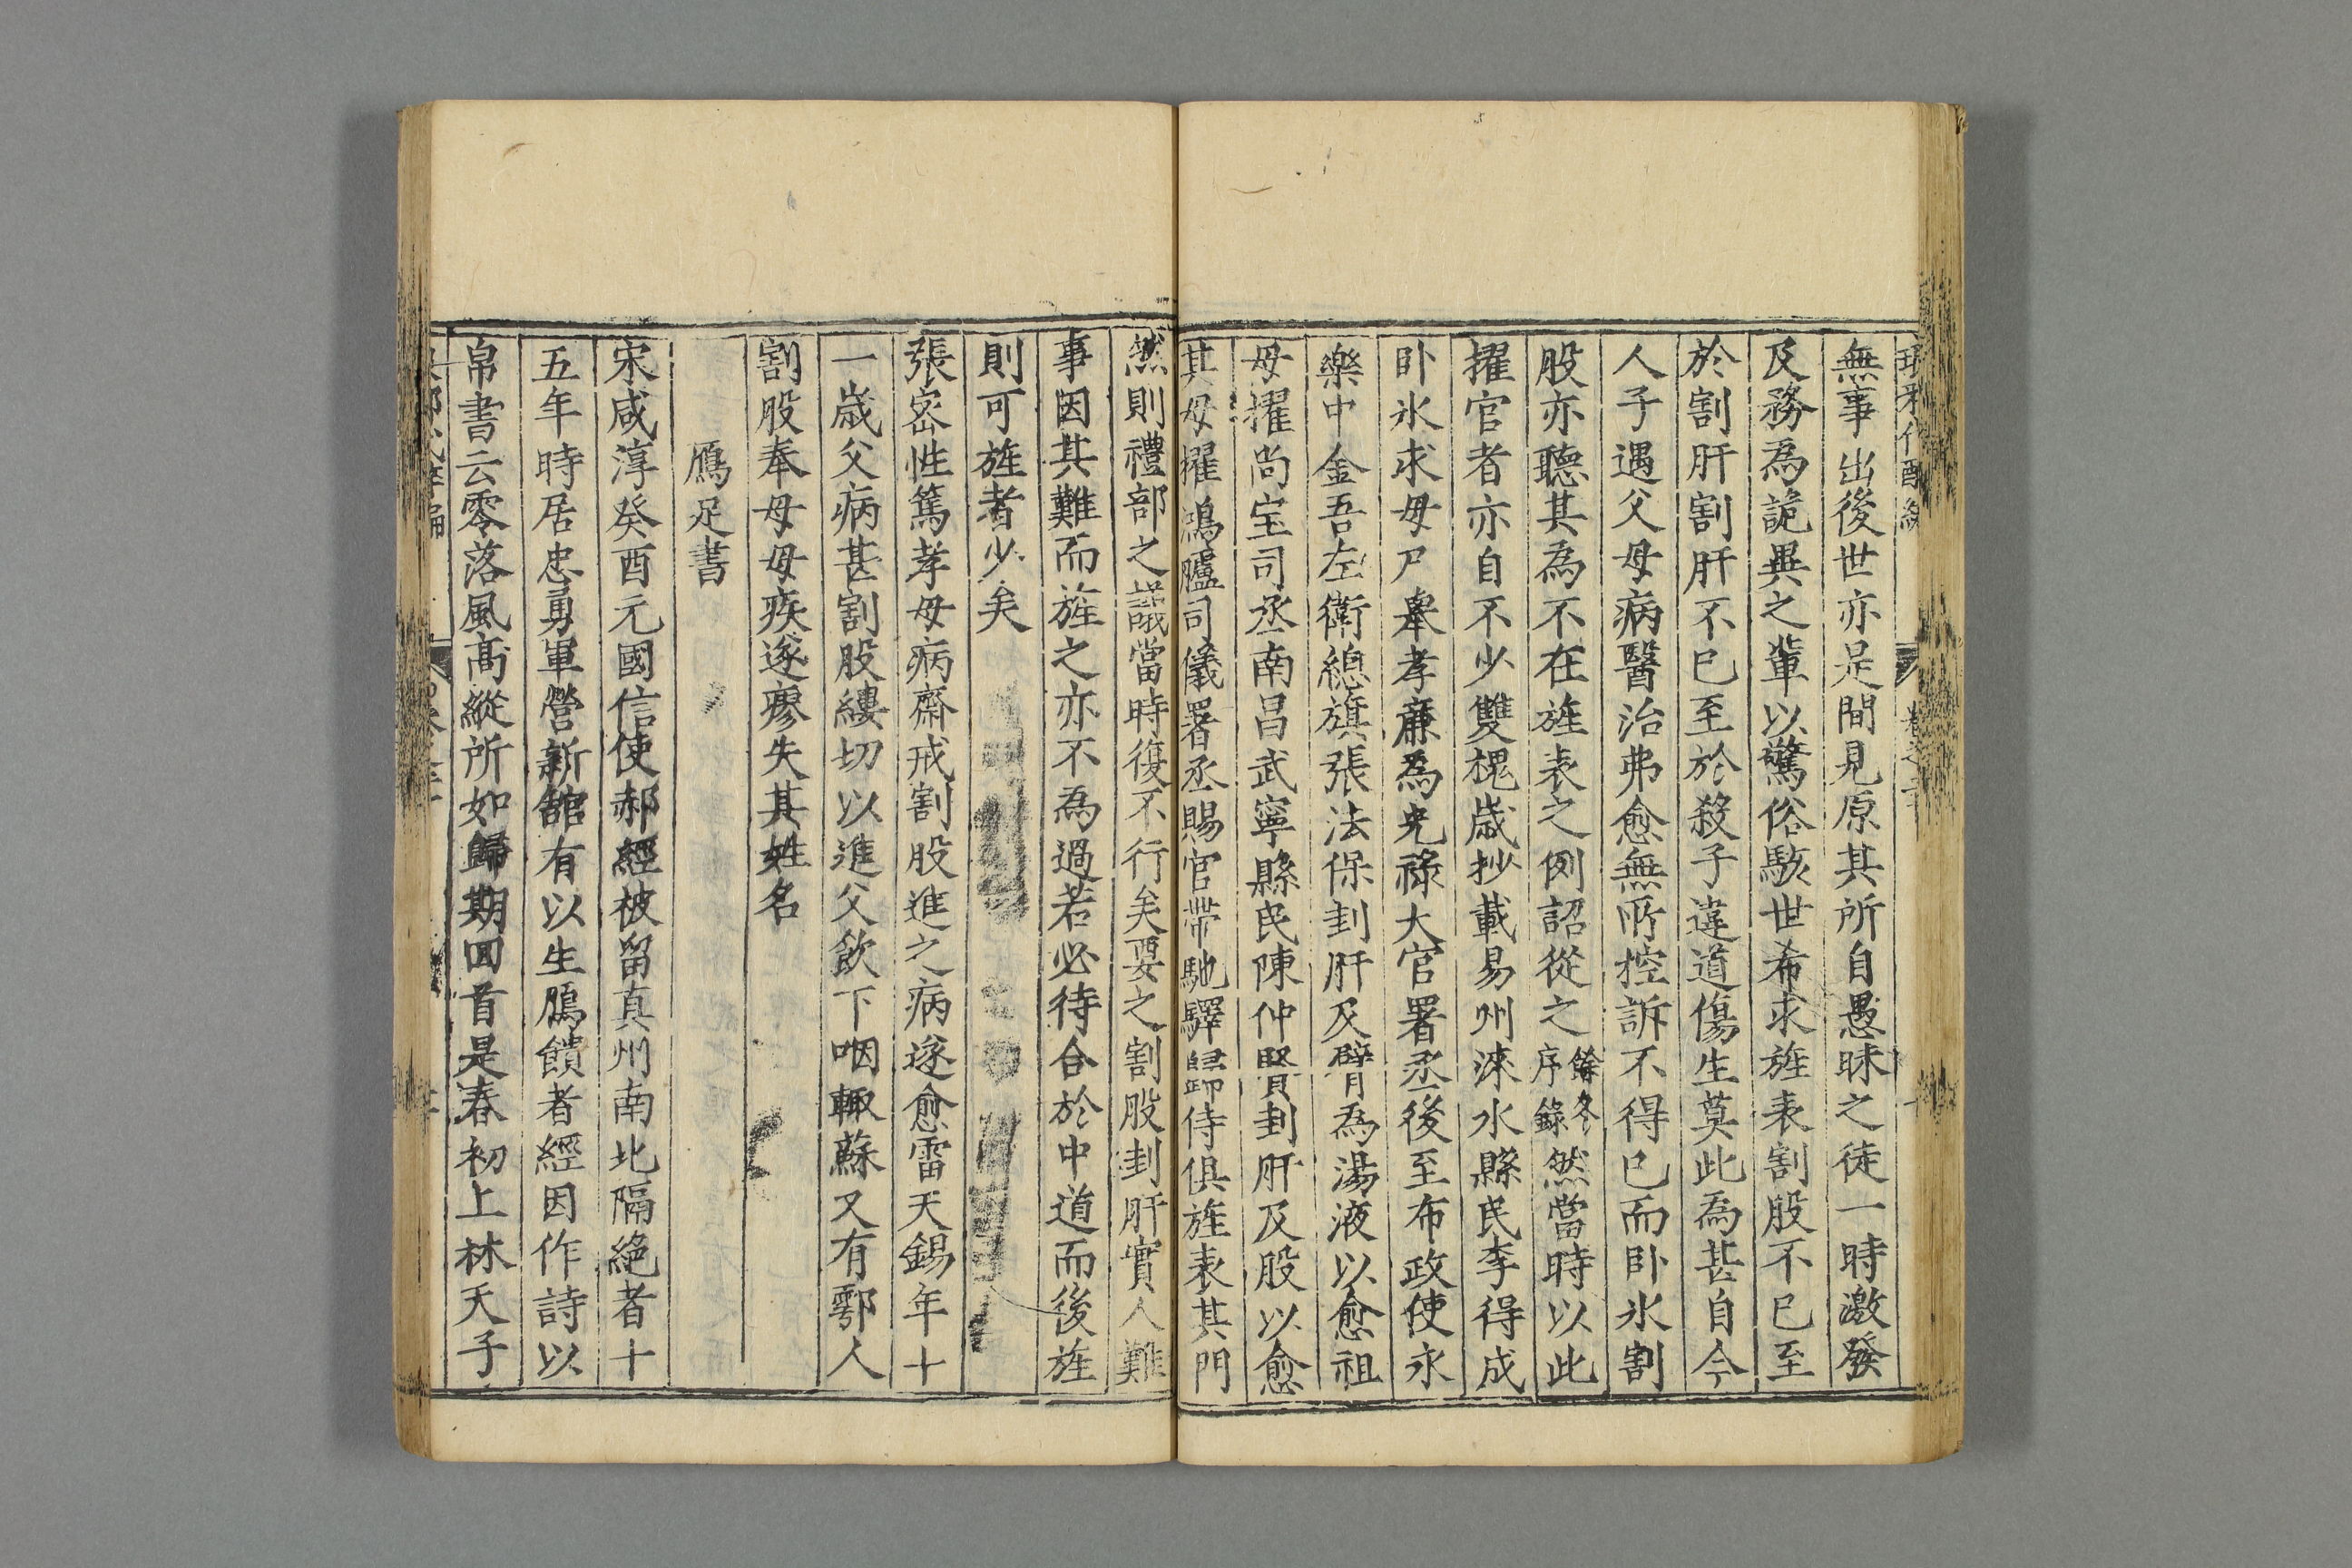 無事出後世亦是間見原其所自愚昧之徒一時激發
及務為詭異之輩以驚俗駭世希求旌表割股不已至
於割肝割肝不已至於殺子違道傷生莫此為甚自今
人子遇父母病醫治弗愈無所控訴不得已而卧氷割
股亦聽其為不在旌表之例詔從之餘冬序錄然當時以此
擢官者亦自不少雙槐歲抄載易州淶水縣民李得成
卧氷求母尸舉孝廉為光祿大官署丞後至布政使永
樂中金吾左衛總旗張法保刲肝及臂為湯液以愈祖
母擢尚宝司丞南昌武寧縣民陳仲賢刲肝及股以愈
其母擢鴻臚司儀署丞賜官帶馳驛歸侍俱旌表其門
然則禮部之議當時復不行矣要之割股刲肝實人難
事因其難而旌之亦不為過若必待合於中道而後旌
則可旌者少矣
張密性篤孝母病齋戒割股進之病遂愈雷天錫年十
一歲父病甚割股縷切以進父飲下咽輒蘇又有鄠人
割股奉母母疾遂瘳失其姓名
鴈足書
宋咸淳癸酉元國信使郝經被留真州南北隔絕者十
五年時居忠勇軍營新舘有以生鴈饋者經因作詩以
帛書云零落風高縱所如歸期回首是春初上林天子